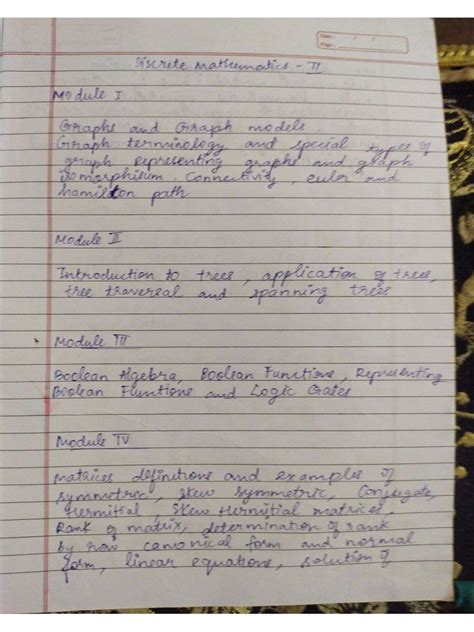 Date : / /
Page :
Discrete Mathematics - II
Module I
Graphs and Graph models
Graph terminology and special types of
graph representing graphs and graph
isomorphism. Connectivity, euler and
hamilton path
Module II
Introduction to trees, application of trees,
tree traversal and spanning trees
Module III
Boolean Algebra, Boolean Functions, Representing
Boolean Functions and Logic Gates
Module IV
Matrices definitions and examples of
symmetric, skew symmetric, Conjugate,
Hermitial, Skew Hermitial matrices.
Rank of matrix, determination of rank
by row canonical form and normal
form, linear equations, solution of